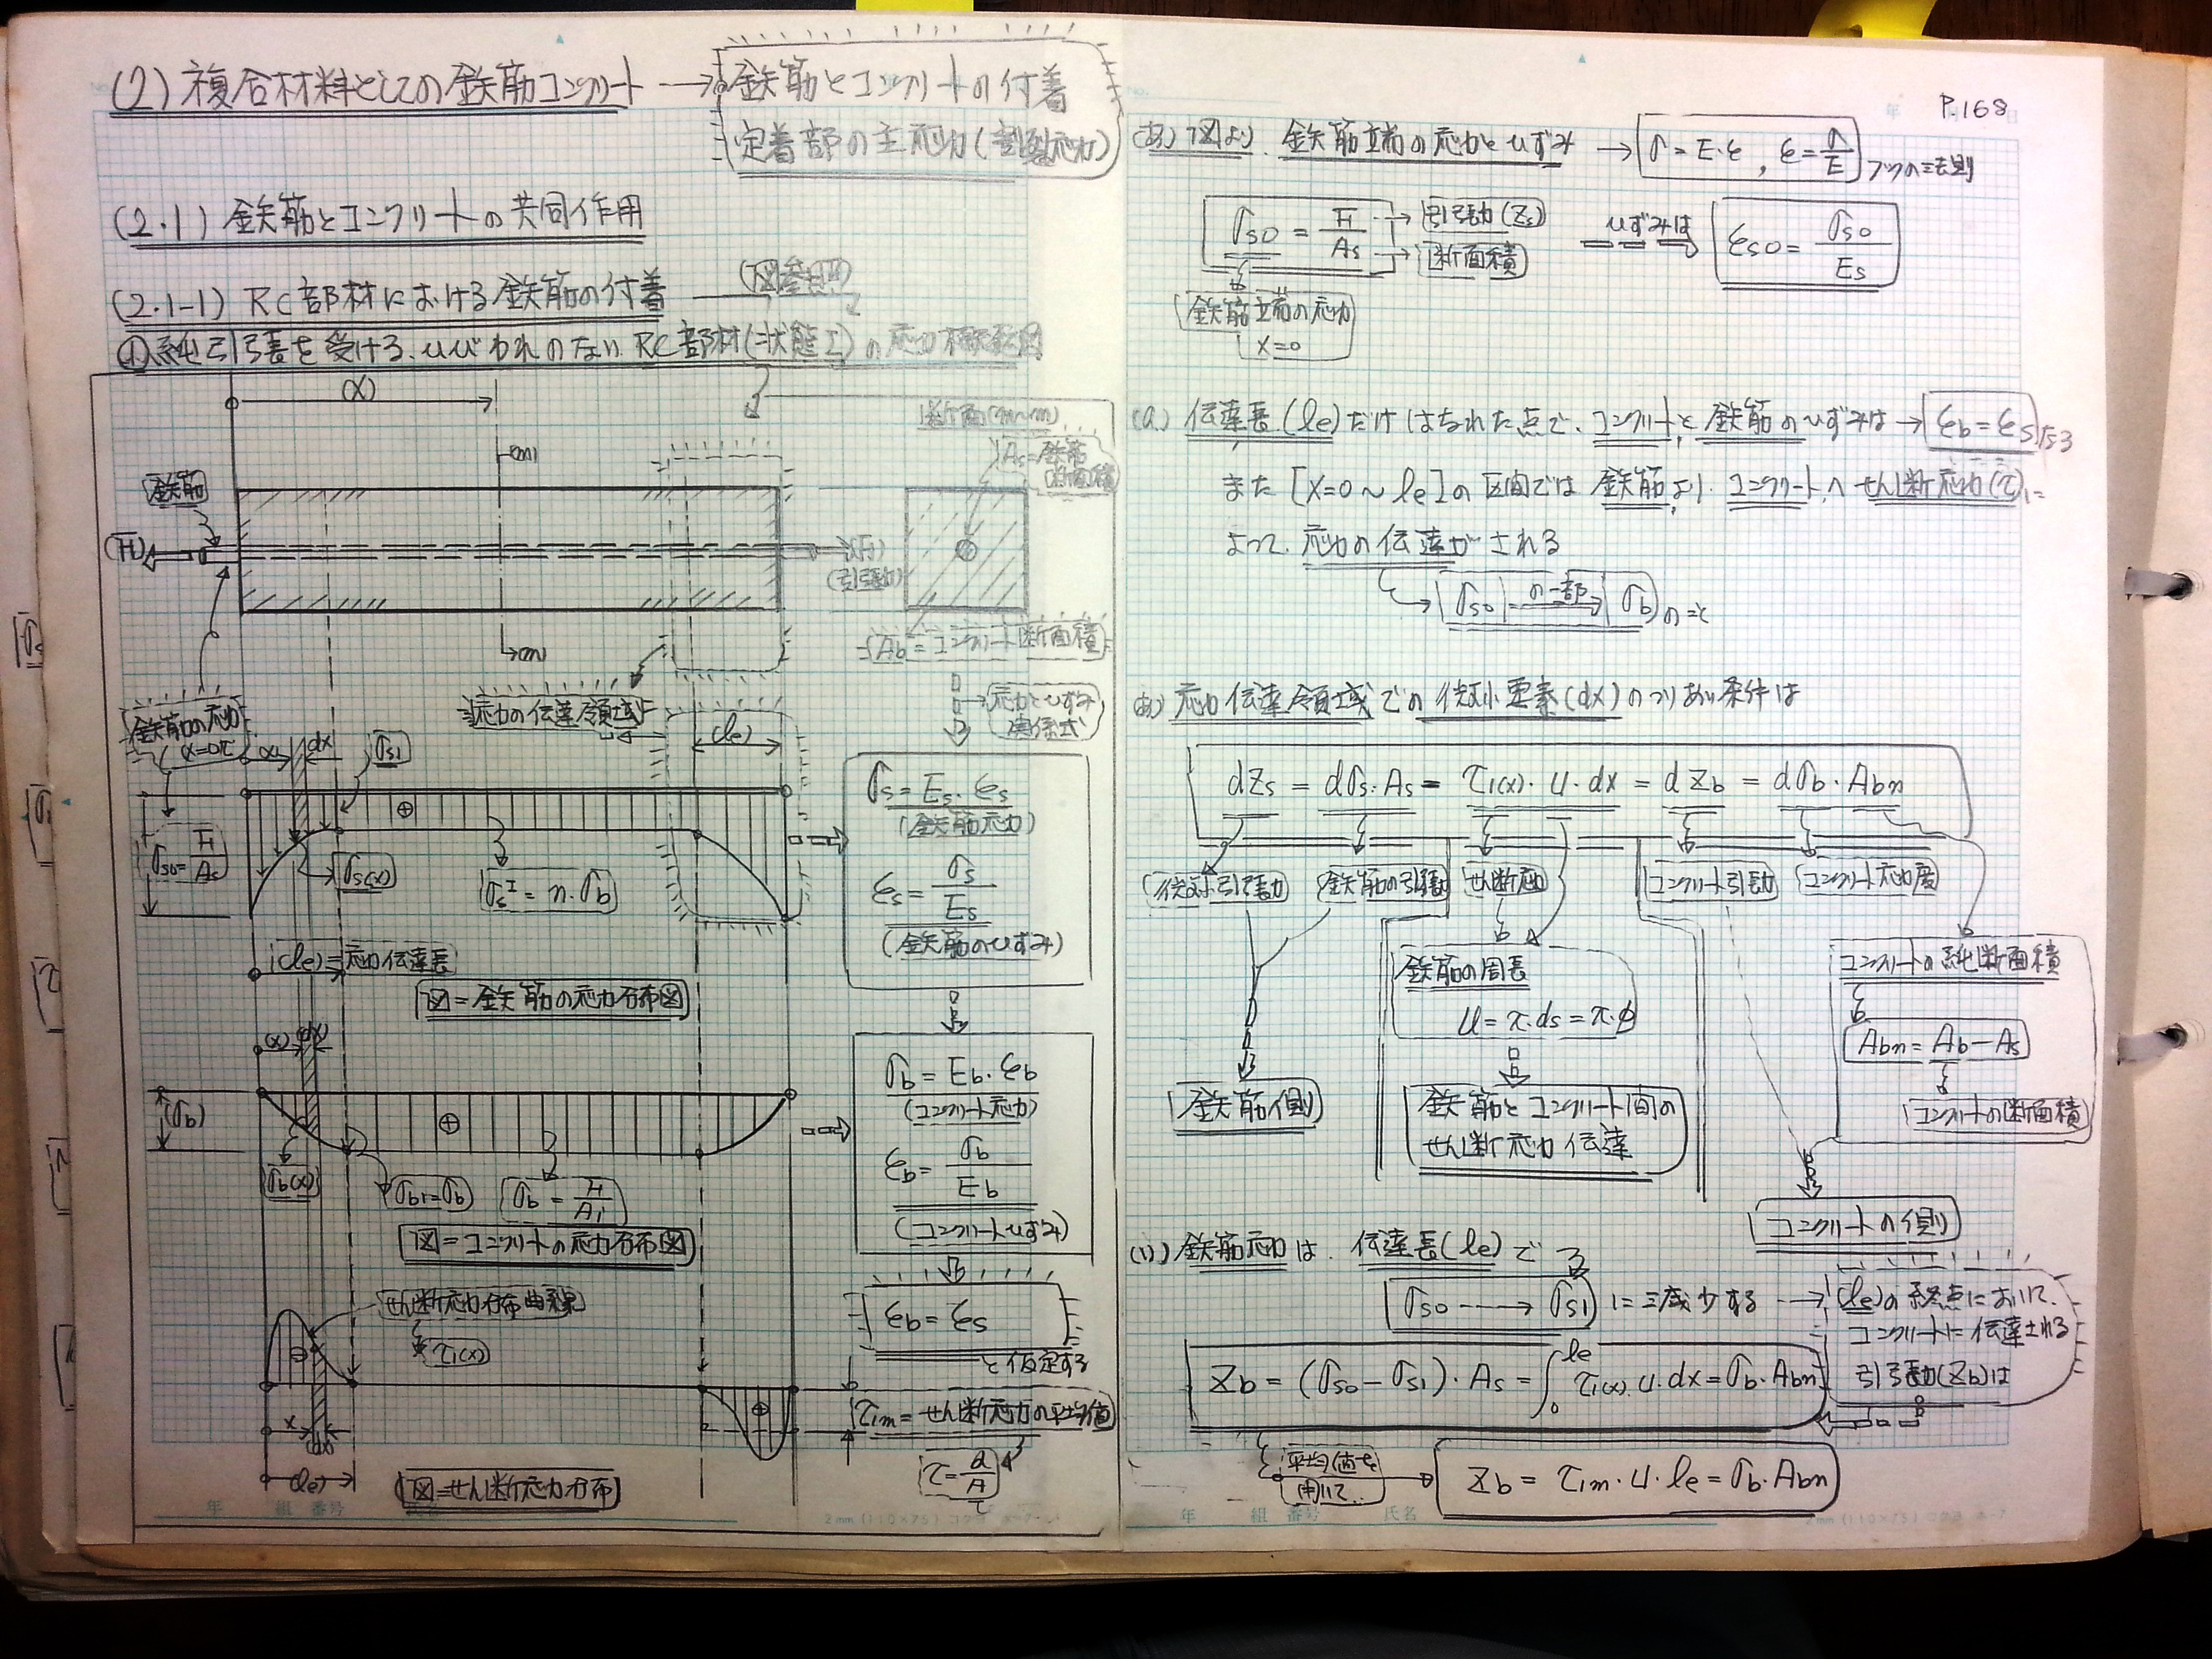 (2) 複合材料としての鉄筋コンクリート → 鉄筋とコンクリートの付着
定着部の主応力(割裂応力)
(2.1) 鉄筋とコンクリートの共同作用
(2.1-1) RC部材における鉄筋の付着
(下図参照)
① 純引張を受ける、ひびわれのないRC部材(状態I)の応力
(x)
断面(m~m)
As=鉄筋
断面積
m
鉄筋
(H)
(H)
(引張力)
m
Ab=コンクリート断面積
鉄筋の応力
(x=0)で
応力の伝達領域
(le)
応力とひずみ
関係式
x
dx
σs1
σso=H/As
σs(x)
σsᴵ=n・σb
(le)=応力伝達長
図=鉄筋の応力分布図
σs=Es・εs
(鉄筋応力)
εs=σs/Es
(鉄筋のひずみ)
(x)
dx
(σb)
σb(x)
σb1=σb
σb=H/Ai
図=コンクリートの応力分布図
σb=Eb・εb
(コンクリート応力)
εb=σb/Eb
(コンクリートひずみ)
εb=εs
と仮定する
せん断応力分布曲線
τ1(x)
τ1m=せん断応力の平均値
τ=Q/A
x
dx
(le)
図=せん断応力分布
年 組 番号 氏名
P.168
(あ) 下図より、鉄筋端の応力とひずみ → σ=E・ε, ε=σ/E フックの法則
σso=H/As → 引張力(Zs)
断面積
ひずみは
εso=σso/Es
鉄筋端の応力
x=0
伝達長(le)だけはなれた点で、コンクリートと鉄筋のひずみは → εb=εs になる
また[x=0~le]の区間では鉄筋より、コンクリートへせん断応力(τ)に
よって、応力の伝達がされる
σso の一部 → σb のこと
応力伝達領域での微小要素(dx)のつりあい条件は
dZs=dσs・As=τ1(x)・U・dx=dZb=dσb・Abn
微小引張力
鉄筋の引張力
せん断応力
コンクリート引張力
コンクリート応力度
鉄筋の周長
U=π・ds=π・φ
コンクリートの純断面積
Abn=Ab-As
コンクリートの断面積
鉄筋側
鉄筋とコンクリート間の
せん断応力伝達
コンクリートの側
(い) 鉄筋応力は、伝達長(le)で
σso → σs1 に減少する → (le)の終点において、
コンクリートに伝達される
引張力(Zb)は
Zb=(σso-σs1)・As=∫₀ˡᵉ τ1(x)・U・dx=σb・Abn
平均値を
用いて、
Zb=τ1m・U・le=σb・Abn
年 組 番号 氏名